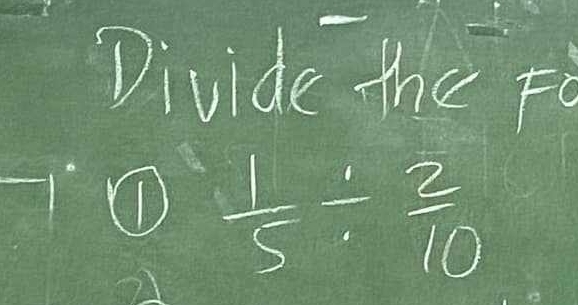 Divide the Fo
① 1/5 ÷ 2/10